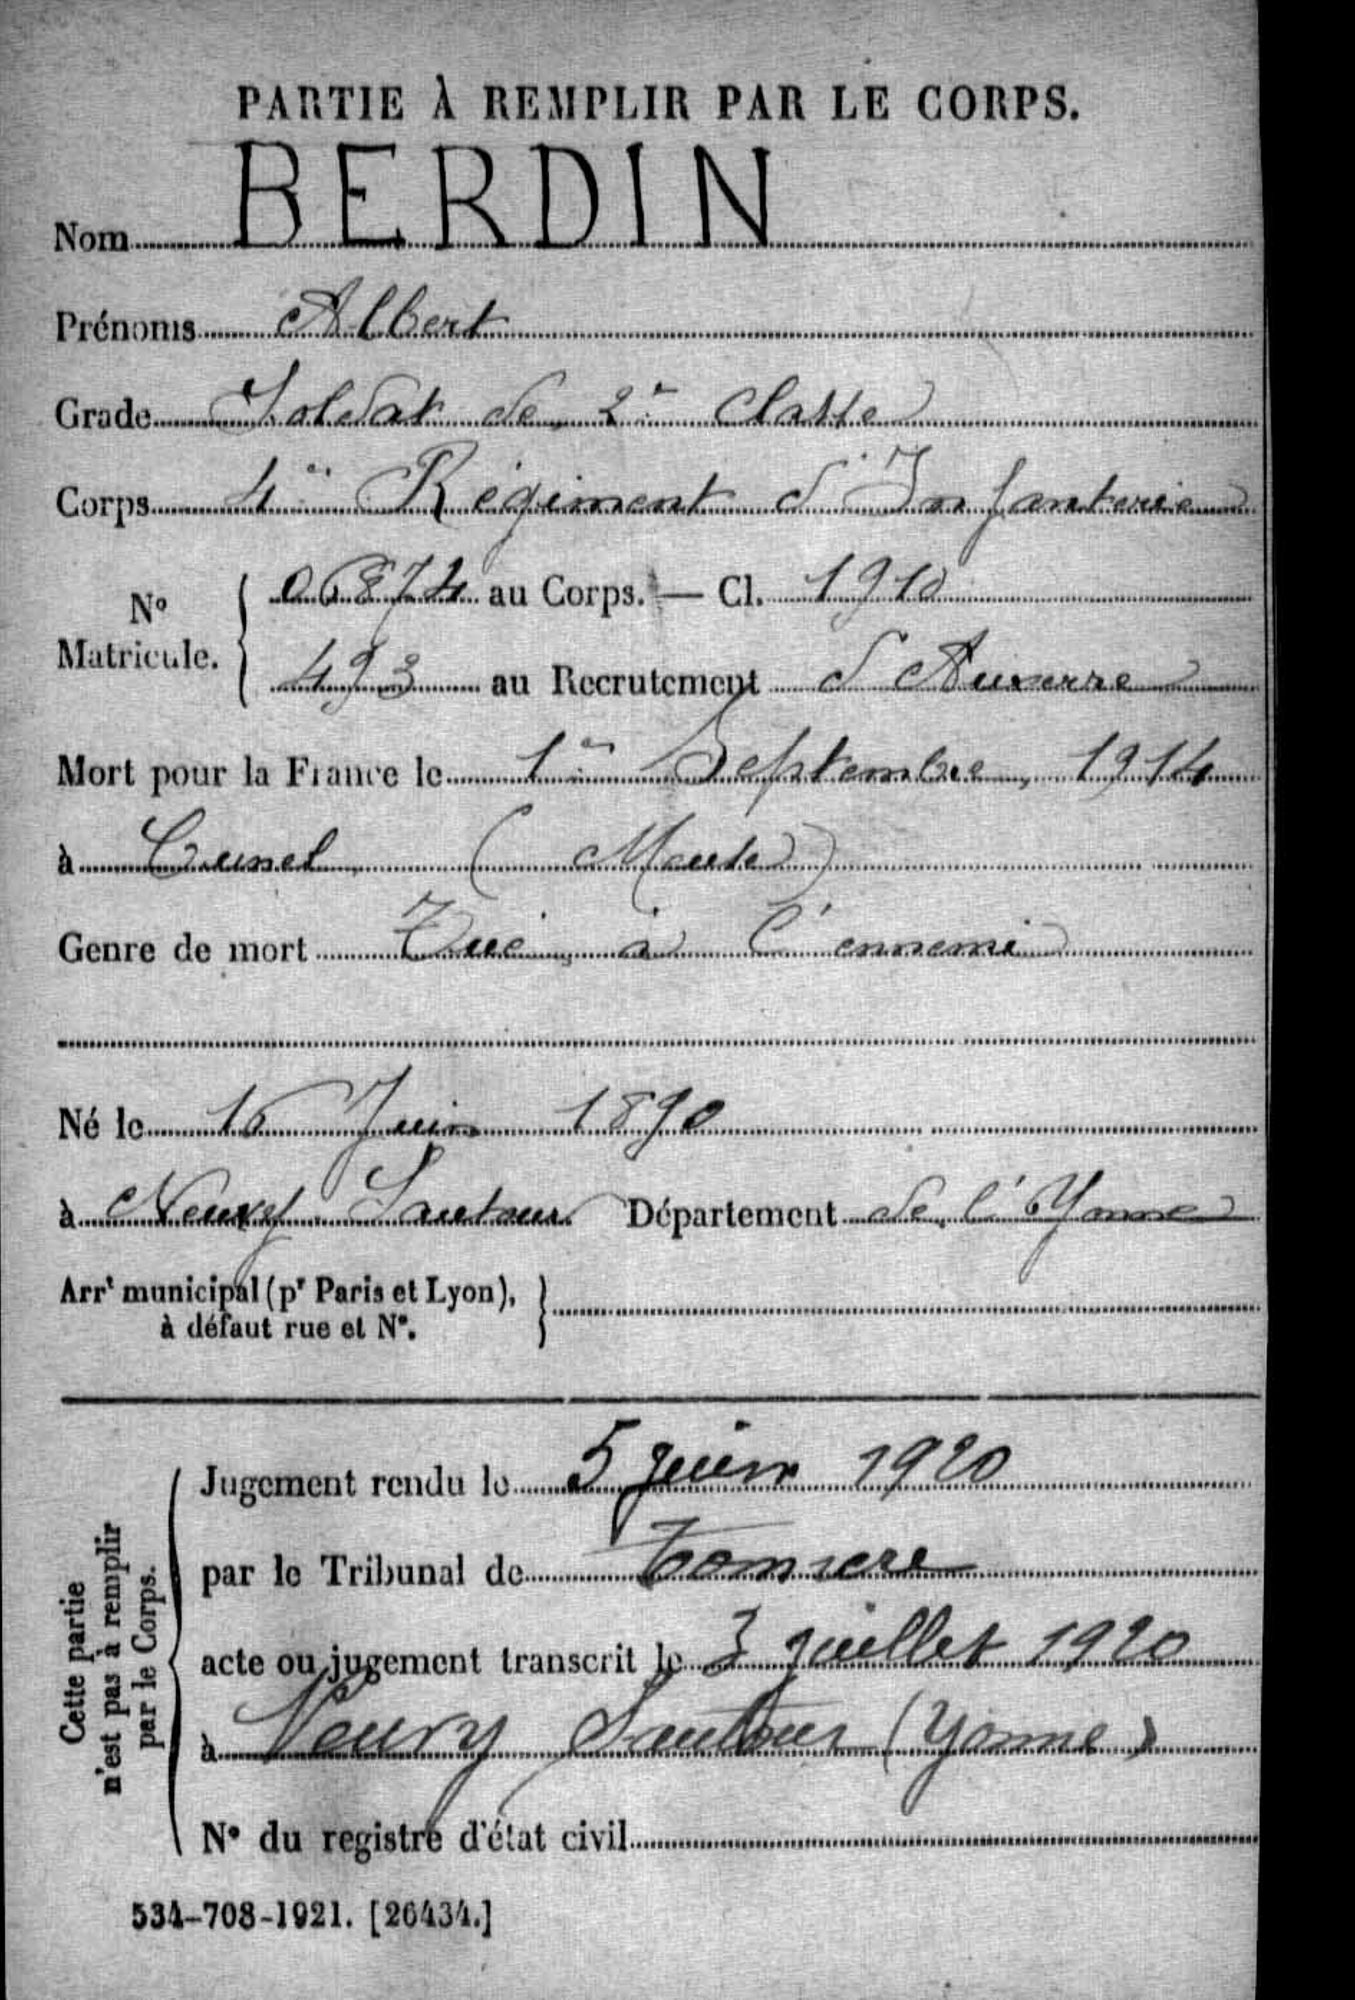 PARTIE À REMPLIR PAR LE CORPS.
Nom BERDIN
Prénoms Albert
Grade Soldat de 2e Classe
Corps 4e Régiment d'Infanterie
No Matricule. { 06874 au Corps. — Cl. 1910
493 au Recrutement d'Auxerre
Mort pour la France le 1er Septembre, 1914
à Cunel (Meuse)
Genre de mort Tué à l'ennemi
Né le 16 Juin 1890
à Neuvy Sautour Département de l'Yonne
Arrt municipal (pr Paris et Lyon), }
à défaut rue et No.
Cette partie
n'est pas à remplir
par le Corps.
Jugement rendu le 5 juin 1920
par le Tribunal de Tonnerre
acte ou jugement transcrit le 3 juillet 1920
à Neuvy Sautour (Yonne)
No du registre d'état civil
534-708-1921. [26434.]